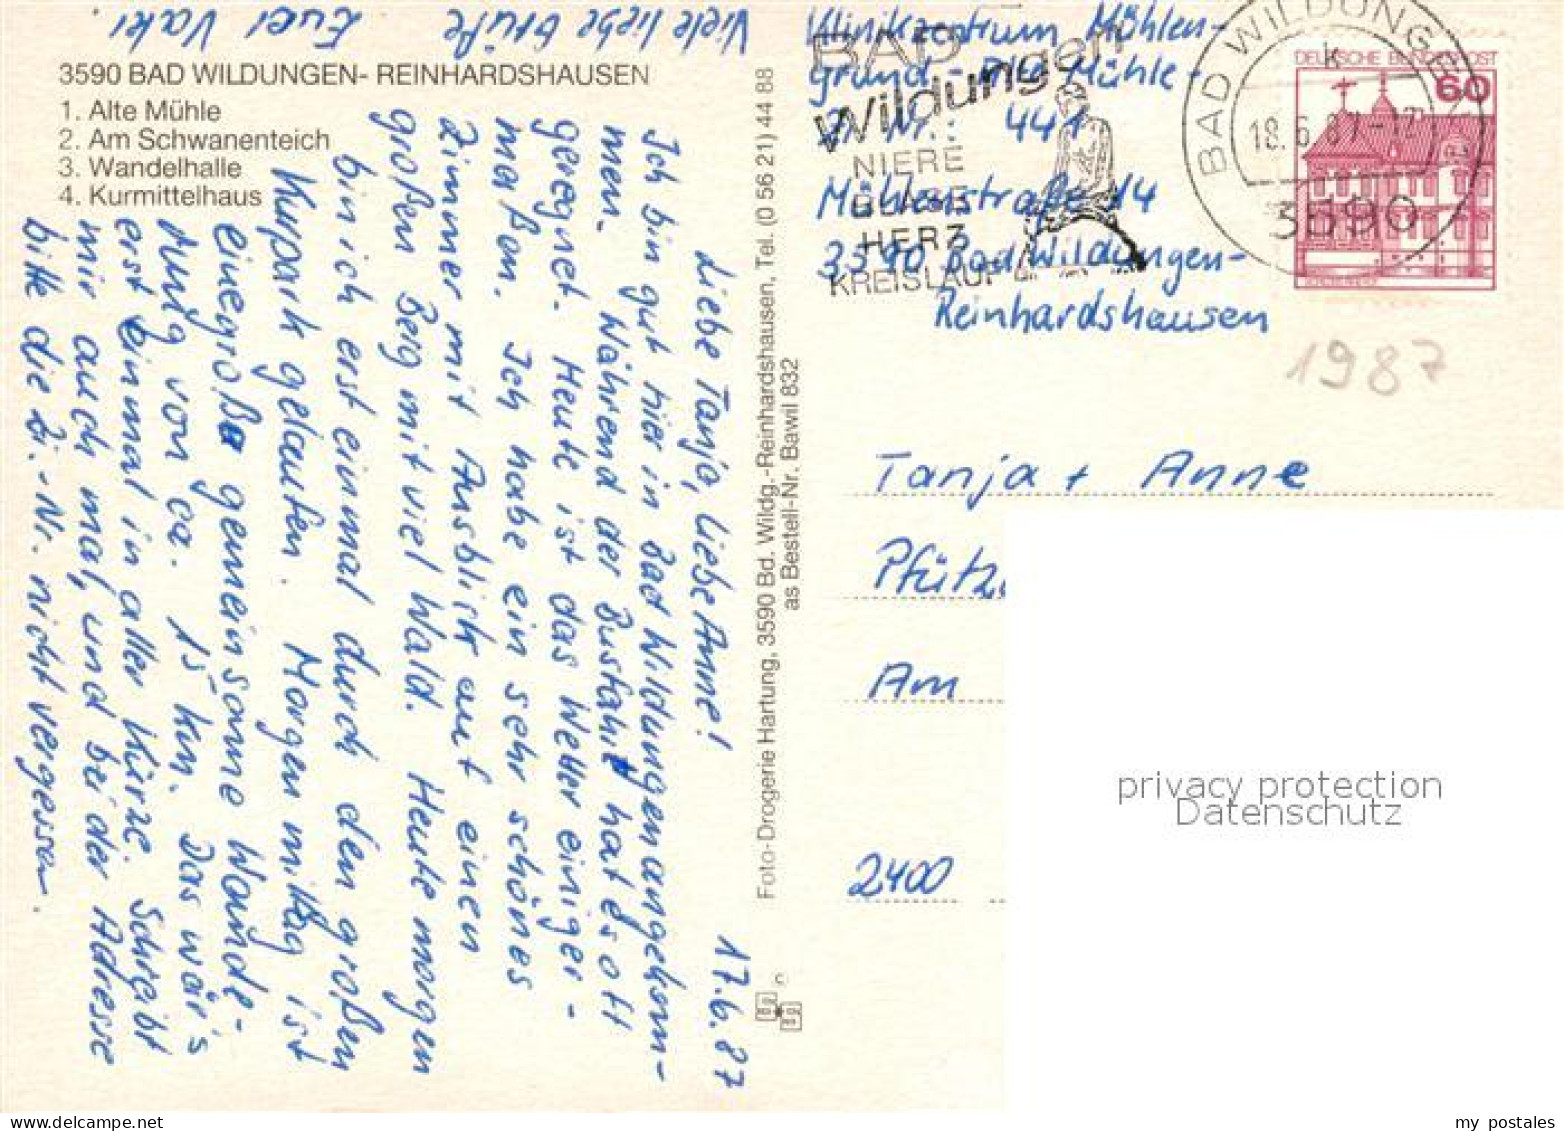 3590 BAD WILDUNGEN- REINHARDSHAUSEN
1. Alte Mühle
2. Am Schwanenteich
3. Wandelhalle
4. Kurmittelhaus
17.6.87
Liebe Tanja, liebe Anne!
Ich bin gut hier in Bad Wildungen angekom-
men. Während der Busfahrt hat es oft
geregnet. Heute ist das Wetter einiger-
maßen. Ich habe ein sehr schönes
Zimmer mit Ausblick auf einen
großen Berg mit viel Wald. Heute morgen
bin ich erst einmal durch den großen
Kurpark gelaufen. Morgen mittag ist
eine große gemeinsame Wande-
rung von ca. 15 km. Das wär's
erst einmal in aller Kürze. Schreibt
mir auch mal, und bei der Adresse
bitte die Zi.-Nr. nicht vergessen.
Viele liebe Grüße
Euer Vati
Foto-Drogerie Hartung, 3590 Bd. Wildg.-Reinhardshausen, Tel. (0 56 21) 44 88
as Bestell-Nr. Bawil 832
Klinikzentrum Mühlen-
grund - Alte Mühle -
Zi. Nr.: 441
Mühlenstraße 14
3590 Bad Wildungen-
Reinhardshausen
BAD
Wildungen
NIERE
BLASE
HERZ
KREISLAUF
BAD WILDUNGEN
k
18.6.87-17
3590
DEUTSCHE BUNDESPOST
60
1987
Tanja + Anne
Pfütz
Am
2400
privacy protection
Datenschutz
my postales